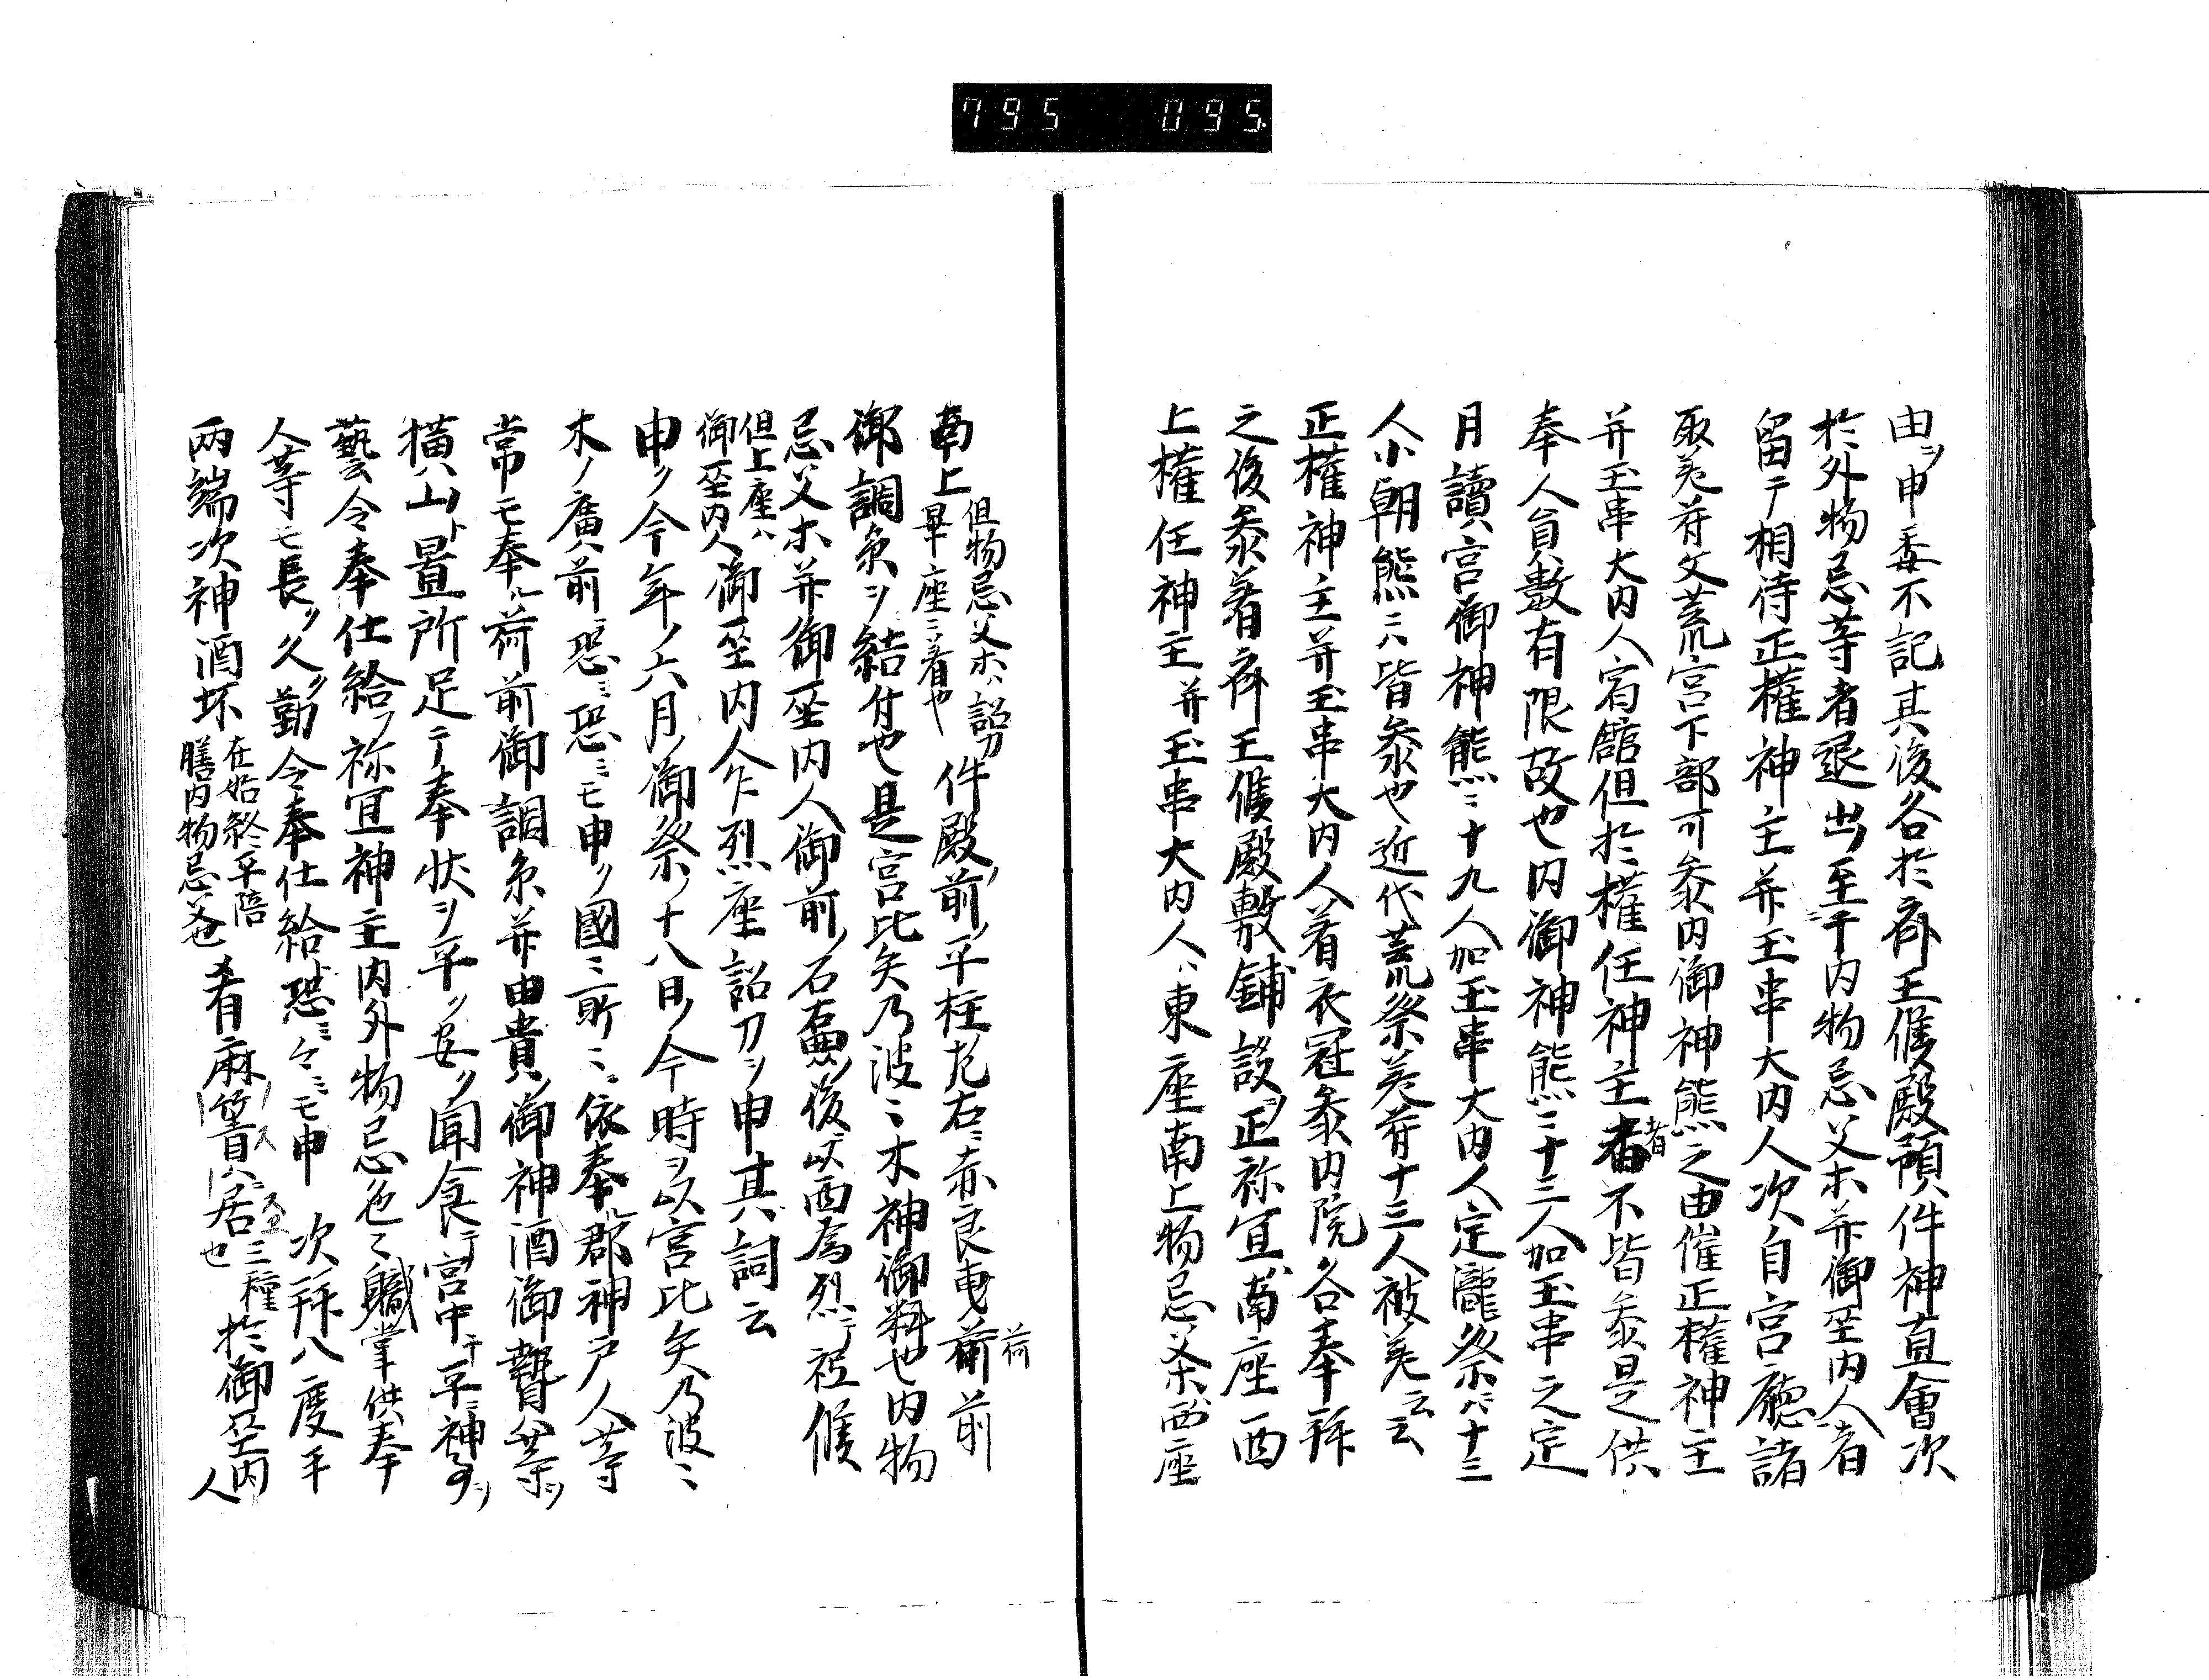 795 095
由ヲ申委不記其後各於斎王候殿預件神直會次
於外物忌等者退出至于内物忌父木并御巫内人者
留テ相待正權神主并玉串大内人次自宮廳諸
取荒荷父荒宮下部可参内御神熊之由催正權神主
并玉串大内人宿舘但於權任神主者不皆参是供
奉人員數有限故也内御神熊ニ十三人加玉串之定
月讀宮御神熊ニ十九人加玉串大内人定瀧祭ニハ十三
人小朝熊ニハ皆参也近代荒祭荒荷十三人被荒云云
正權神主并玉串大内人着衣冠参内院各奉拜
之後参着斎王候殿敷鋪設正祢宜南座西
上權任神主并玉串大内人東座南上物忌父木西座
南上但物忌父木ハ詔刀畢座ニ着也件殿前ノ平柱左右ニ赤良曳荷前
御調糸ヲ結付也是宮比矢乃波ニ木神御料也内物
忌父木并御巫内人御前ノ石壘ノ後以西為烈テ祗候
但上座ハ御巫内人御巫内人乍烈座詔刀ヲ申其詞云
申ク今年ノ六月ノ御祭ノ十八日ノ今時ヲ以宮比矢乃波ニ
木ノ廣前恐ミ恐ミモ申ク國ニ所ニ依奉ル郡神戸人等
常モ奉ル荷前御調糸并由貴ノ御神酒御贄等ヲ
横山ノ置所足テ奉状ヲ平ク安ク聞食テ宮中平ニ神事ヲ
藝令奉仕給フ祢宜神主内外物忌色々職掌供奉
人等モ長ク久ク勤令奉仕給恐ミ々ミモ申 次拜八度手
兩端次神酒坏在始終平陪膳内物忌父也肴麻笥ニ居三種也於御巫内人